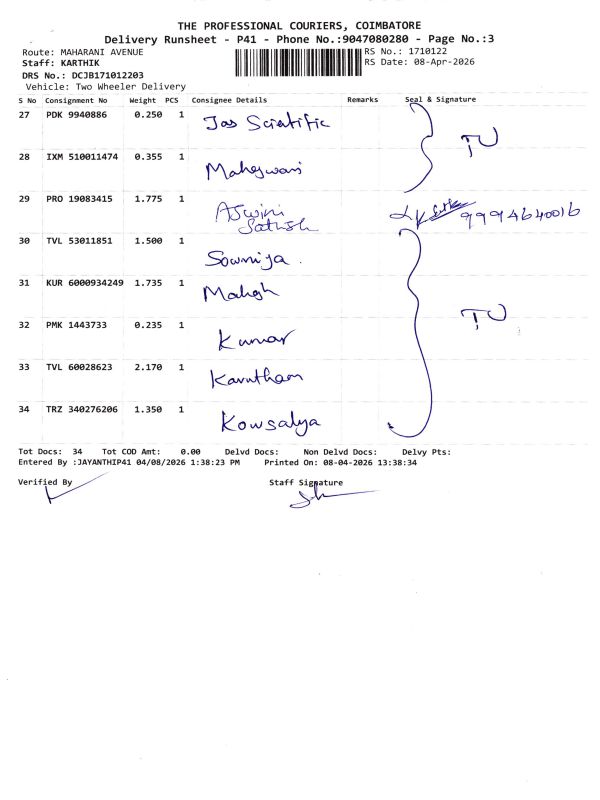 THE PROFESSIONAL COURIERS, COIMBATORE
Delivery Runsheet - P41 - Phone No.:9047080280 - Page No.:3
Route: MAHARANI AVENUE RS No.: 1710122
Staff: KARTHIK RS Date: 08-Apr-2026
DRS No.: DCJB171012203
Vehicle: Two Wheeler Delivery
S No Consignment No Weight PCS Consignee Details Remarks Seal & Signature
27 PDK 9940886 0.250 1 Jas Scientific
TU
28 IXM 510011474 0.355 1 Maheswari
29 PRO 19083415 1.775 1 Aswini Sathish 9994640016
30 TVL 53011851 1.500 1 Sowmiya
31 KUR 6000934249 1.735 1 Mahesh
TU
32 PMK 1443733 0.235 1 Kumar
33 TVL 60028623 2.170 1
34 TRZ 340276206 1.350 1 Kowsalya
Tot Docs: 34 Tot COD Amt: 0.00 Delvd Docs: Non Delvd Docs: Delvy Pts:
Entered By :JAYANTHIP41 04/08/2026 1:38:23 PM Printed On: 08-04-2026 13:38:34
Verified By Staff Signature